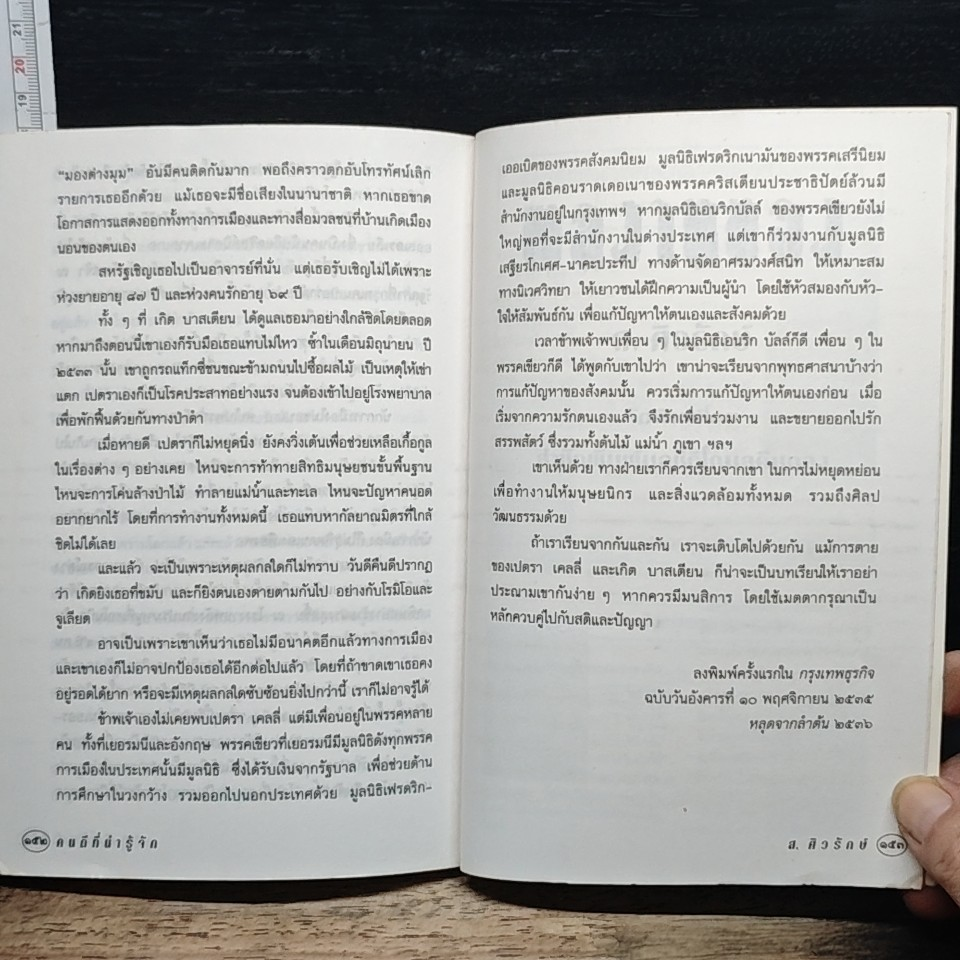 21
20
19
"มองต่างมุม" อันมีคนติดกันมาก พอถึงคราวตกอับโทรทัศน์เลิก
รายการเธออีกด้วย แม้เธอจะมีชื่อเสียงในนานาชาติ หากเธอขาด
โอกาสการแสดงออกทั้งทางการเมืองและทางสื่อมวลชนที่บ้านเกิดเมือง
นอนของตนเอง
สหรัฐเชิญเธอไปเป็นอาจารย์ที่นั่น แต่เธอรับเชิญไม่ได้เพราะ
ห่วงยายอายุ ๘๗ ปี และห่วงคนรักอายุ ๖๙ ปี
ทั้ง ๆ ที่ เกิต บาสเตียน ได้ดูแลเธอมาอย่างใกล้ชิดโดยตลอด
หากมาถึงตอนนี้เขาเองก็รับมือเธอแทบไม่ไหว ซ้ำในเดือนมิถุนายน ปี
๒๕๓๓ นั้น เขาถูกรถแท็กซี่ชนขณะข้ามถนนไปซื้อผลไม้ เป็นเหตุให้เข่า
แตก เปตราเองก็เป็นโรคประสาทอย่างแรง จนต้องเข้าไปอยู่โรงพยาบาล
เพื่อพักฟื้นด้วยกันทางป่าดำ
เมื่อหายดี เปตราก็ไม่หยุดนิ่ง ยังคงวิ่งเต้นเพื่อช่วยเหลือเกื้อกูล
ในเรื่องต่าง ๆ อย่างเคย ไหนจะการท้าทายสิทธิมนุษยชนขั้นพื้นฐาน
ไหนจะการโค่นล้างป่าไม้ ทำลายแม่น้ำและทะเล ไหนจะปัญหาคนอด
อยากยากไร้ โดยที่การทำงานทั้งหมดนี้ เธอแทบหากัลยาณมิตรที่ใกล้
ชิดไม่ได้เลย
และแล้ว จะเป็นเพราะเหตุผลกลใดก็ไม่ทราบ วันดีคืนดีปรากฏ
ว่า เกิตยิงเธอที่ขมับ และก็ยิงตนเองตายตามกันไป อย่างกับโรมิโอและ
จูเลียต
อาจเป็นเพราะเขาเห็นว่าเธอไม่มีอนาคตอีกแล้วทางการเมือง
และเขาเองก็ไม่อาจปกป้องเธอได้อีกต่อไปแล้ว โดยที่ถ้าขาดเขาเธอคง
อยู่รอดได้ยาก หรือจะมีเหตุผลกลใดซับซ้อนยิ่งไปกว่านี้ เราก็ไม่อาจรู้ได้
ข้าพเจ้าเองไม่เคยพบเปตรา เคลลี่ แต่มีเพื่อนอยู่ในพรรคหลาย
คน ทั้งที่เยอรมนีและอังกฤษ พรรคเขียวที่เยอรมนีมีมูลนิธิดังทุกพรรค
การเมืองในประเทศนั้นมีมูลนิธิ ซึ่งได้รับเงินจากรัฐบาล เพื่อช่วยด้าน
การศึกษาในวงกว้าง รวมออกไปนอกประเทศด้วย มูลนิธิเฟรดริก-
๑๕๒ คนดีที่น่ารู้จัก
เออเบิตของพรรคสังคมนิยม มูลนิธิเฟรดริกเนามันของพรรคเสรีนิยม
และมูลนิธิคอนราดเดอเนาของพรรคคริสเตียนประชาธิปัตย์ล้วนมี
สำนักงานอยู่ในกรุงเทพฯ หากมูลนิธิเอนริกบัลล์ ของพรรคเขียวยังไม่
ใหญ่พอที่จะมีสำนักงานในต่างประเทศ แต่เขาก็ร่วมงานกับมูลนิธิ
เสฐียรโกเศศ-นาคะประทีป ทางด้านจัดอาศรมวงศ์สนิท ให้เหมาะสม
ทางนิเวศวิทยา ให้เยาวชนได้ฝึกความเป็นผู้นำ โดยใช้หัวสมองกับหัว-
ใจให้สัมพันธ์กัน เพื่อแก้ปัญหาให้ตนเองและสังคมด้วย
เวลาข้าพเจ้าพบเพื่อน ๆ ในมูลนิธิเอนริก บัลล์ก็ดี เพื่อน ๆ ใน
พรรคเขียวก็ดี ได้พูดกับเขาไปว่า เขาน่าจะเรียนจากพุทธศาสนาบ้างว่า
การแก้ปัญหาของสังคมนั้น ควรเริ่มการแก้ปัญหาให้ตนเองก่อน เมื่อ
เริ่มจากความรักตนเองแล้ว จึงรักเพื่อนร่วมงาน และขยายออกไปรัก
สรรพสัตว์ ซึ่งรวมทั้งต้นไม้ แม่น้ำ ภูเขา ฯลฯ
เขาเห็นด้วย ทางฝ่ายเราก็ควรเรียนจากเขา ในการไม่หยุดหย่อน
เพื่อทำงานให้มนุษยนิกร และสิ่งแวดล้อมทั้งหมด รวมถึงศิลป
วัฒนธรรมด้วย
ถ้าเราเรียนจากกันและกัน เราจะเติบโตไปด้วยกัน แม้การตาย
ของเปตรา เคลลี่ และเกิต บาสเตียน ก็น่าจะเป็นบทเรียนให้เราอย่า
ประณามเขากันง่าย ๆ หากควรมีมนสิการ โดยใช้เมตตากรุณาเป็น
หลักควบคู่ไปกับสติและปัญญา
ลงพิมพ์ครั้งแรกใน กรุงเทพธุรกิจ
ฉบับวันอังคารที่ ๑๐ พฤศจิกายน ๒๕๓๕
หลุดจากลำต้น ๒๕๓๖
ส. ศิวรักษ์ ๑๕๓